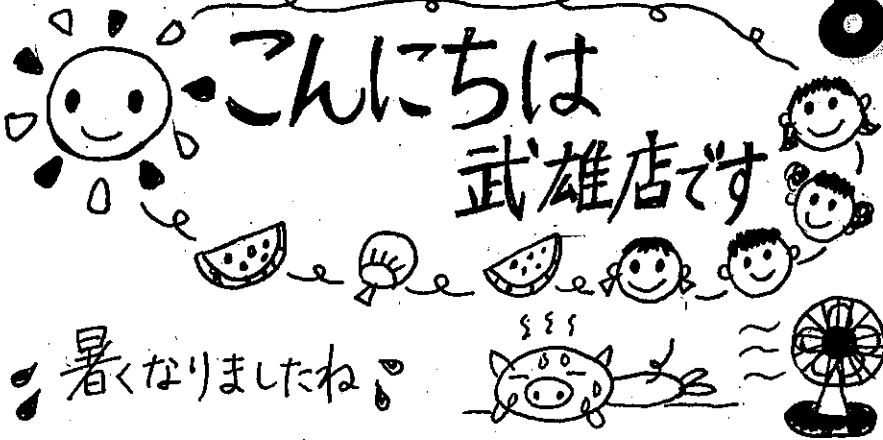 こんにちは
武雄店です
暑くなりましたね